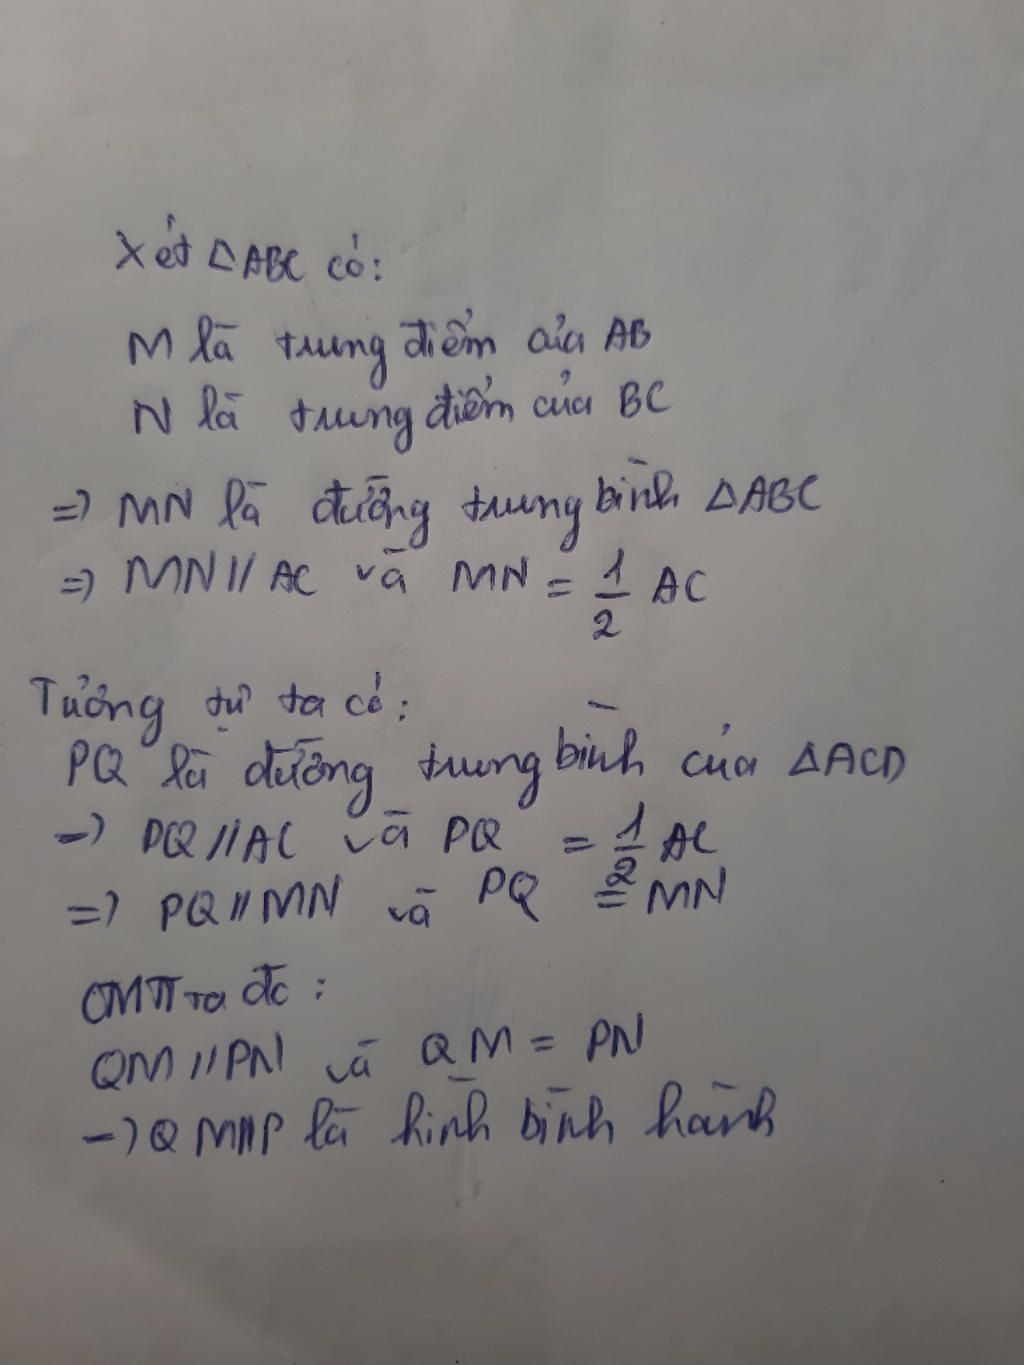 Xét ΔABC có:
M là trung điểm của AB
N là trung điểm của BC
=> MN là đường trung bình ΔABC
=> MN // AC và MN = 1/2 AC
Tương tự ta có:
PQ là đường trung bình của ΔACD
-> PQ // AC và PQ = 1/2 AC
=> PQ // MN và PQ = MN
CMTT ta đc:
QM // PN và QM = PN
-> QMNP là hình bình hành